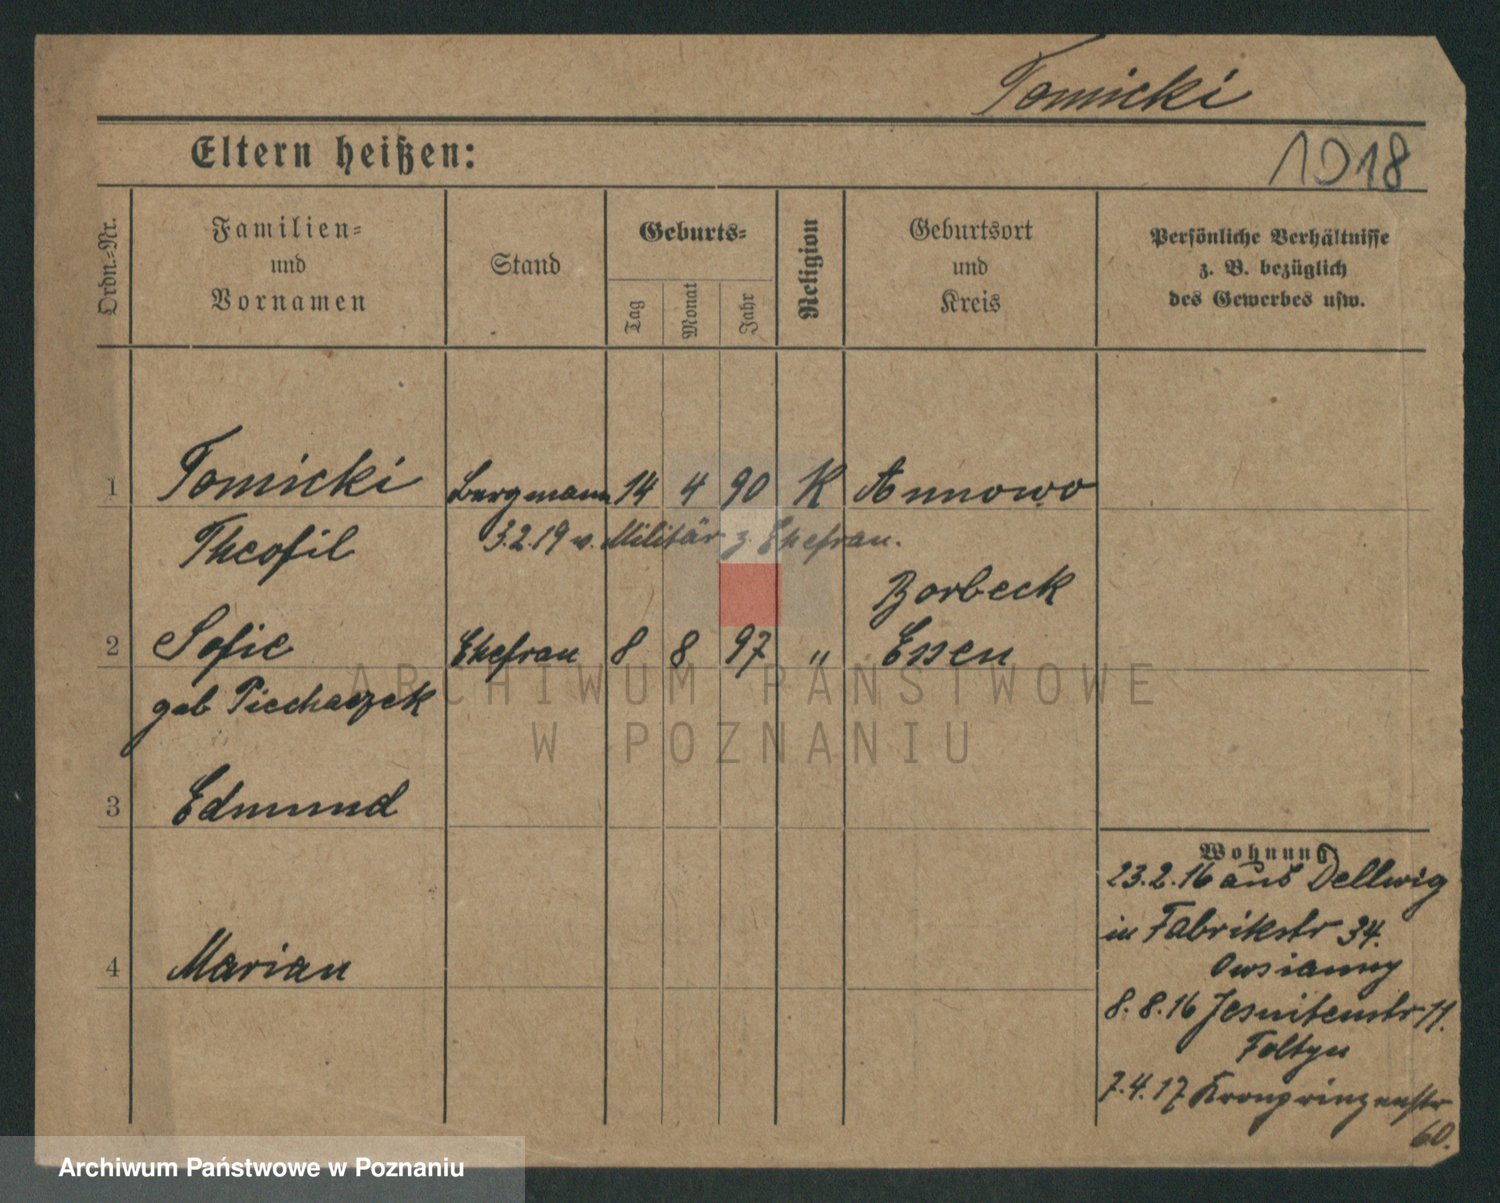 Tomicki
Eltern heißen:
1918
Ordn.-Nr.
Familien-
und
Vornamen
Stand
Geburts-
Tag
Monat
Jahr
Religion
Geburtsort
und
Kreis
Persönliche Verhältnisse
z. B. bezüglich
des Gewerbes usw.
1 Tomicki Bergmann 14 4 90 K Annowo
Theofil 3.2.19 v. Militär z. Ehefrau.
Borbeck
2 Sofie Ehefrau 8 8 97 " Essen
geb Piechaczek
ARCHIWUM PAŃSTWOWE
W POZNANIU
3 Edmund
4 Marian
Wohnung
23.2.16 aus Dellwig
in Fabrikstr 34.
Owsianny
8.8.16 Jesuitenstr 11.
Foltyn
7.4.17 Kronprinzenstr
60.
Archiwum Państwowe w Poznaniu